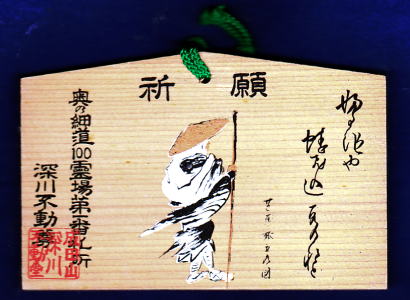 祈願
古池や
蛙飛込
水の音
奥の細道100霊場第一番札所
深川不動尊
成田山
深川
不動堂